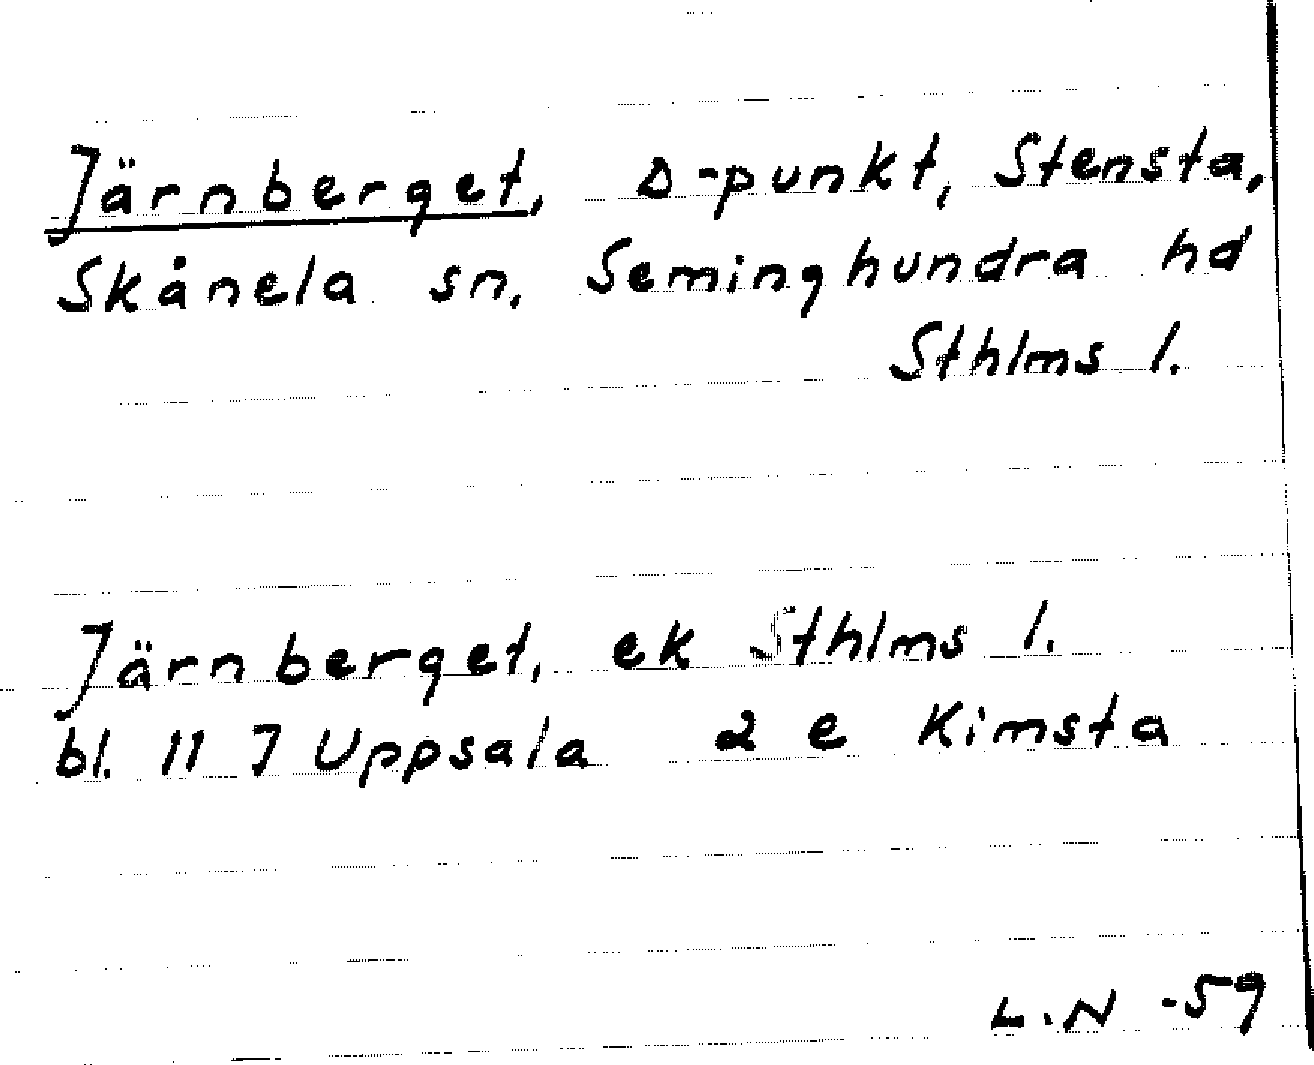 Järnberget, Δ-punkt, Stensta,
Skånela sn. Seminghundra hd
Sthlms l.
Järnberget, ek Sthlms l.
bl. 11 J Uppsala 2 e Kimsta
L.N -59